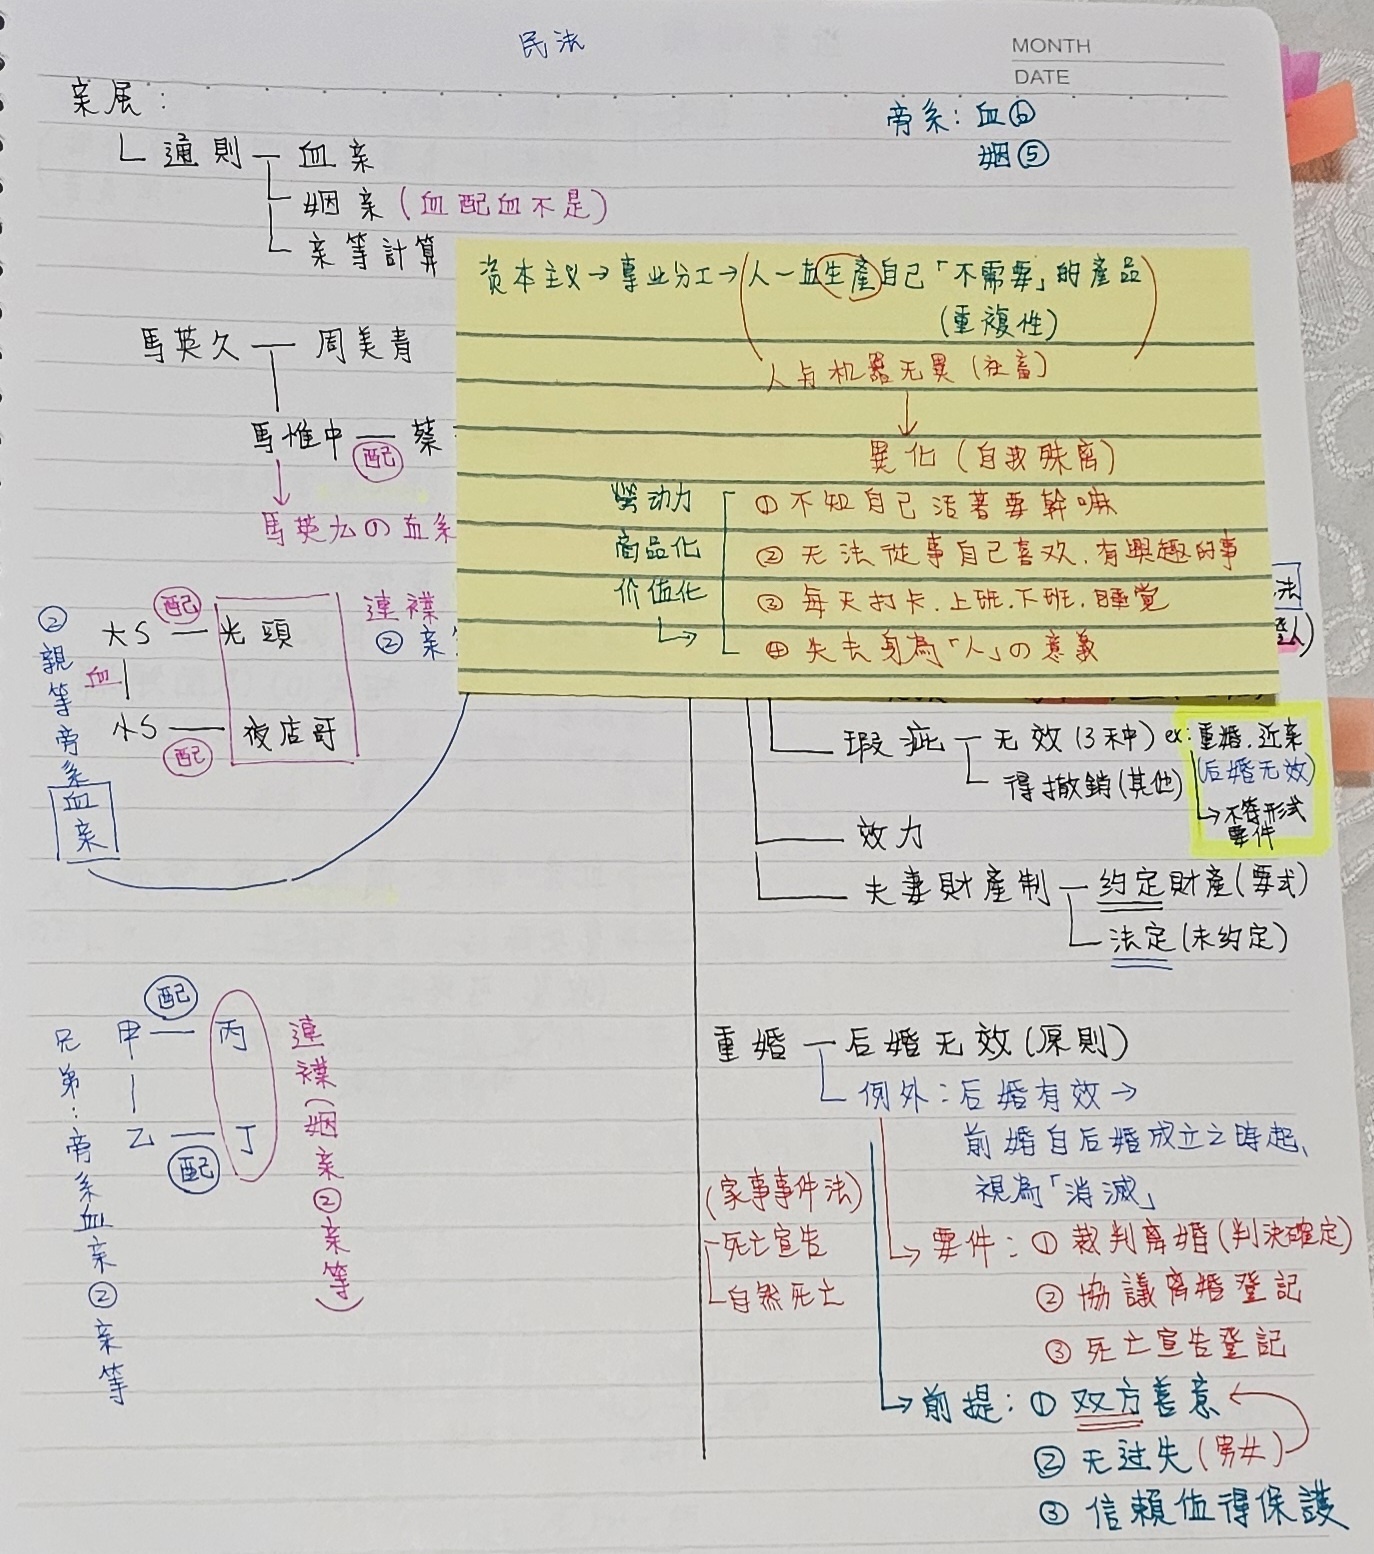 民法
MONTH
DATE
亲属:
旁系:血⑥
姻⑤
通則 血亲
姻亲(血配血不是)
亲等計算
資本主义→專业分工→(人一直生產自己「不需要」的產品
(重複性)
人与机器无異(社畜)
異化(自我疎离)
勞动力
商品化
价值化
①不知自己活著要幹嘛
②无法從事自己喜欢.有興趣的事
③每天打卡.上班.下班.睡覚
④失去身為「人」の意義
馬英久 周美青
馬惟中 蔡
配
馬英九の血系
②親等旁系血亲
配
大S 光頭
血
小S 夜店哥
配
連襟
②亲
法
瑕疵 无效(3种) ex:重婚.近亲
(后婚无效)
得撤銷(其他)
→不符形式
要件
效力
夫妻財產制 约定財產(要式)
法定(未约定)
配
甲 丙
乙 丁
配
兄弟:旁系血亲②亲等
連襟(姻亲②亲等)
重婚 后婚无效(原則)
例外:后婚有效→
前婚自后婚成立之時起,
視為「消滅」
(家事事件法)
死亡宣告
自然死亡
要件:①裁判离婚(判決確定)
②協議离婚登記
③死亡宣告登記
前提:①双方善意
②无过失(男女)
③信賴值得保護